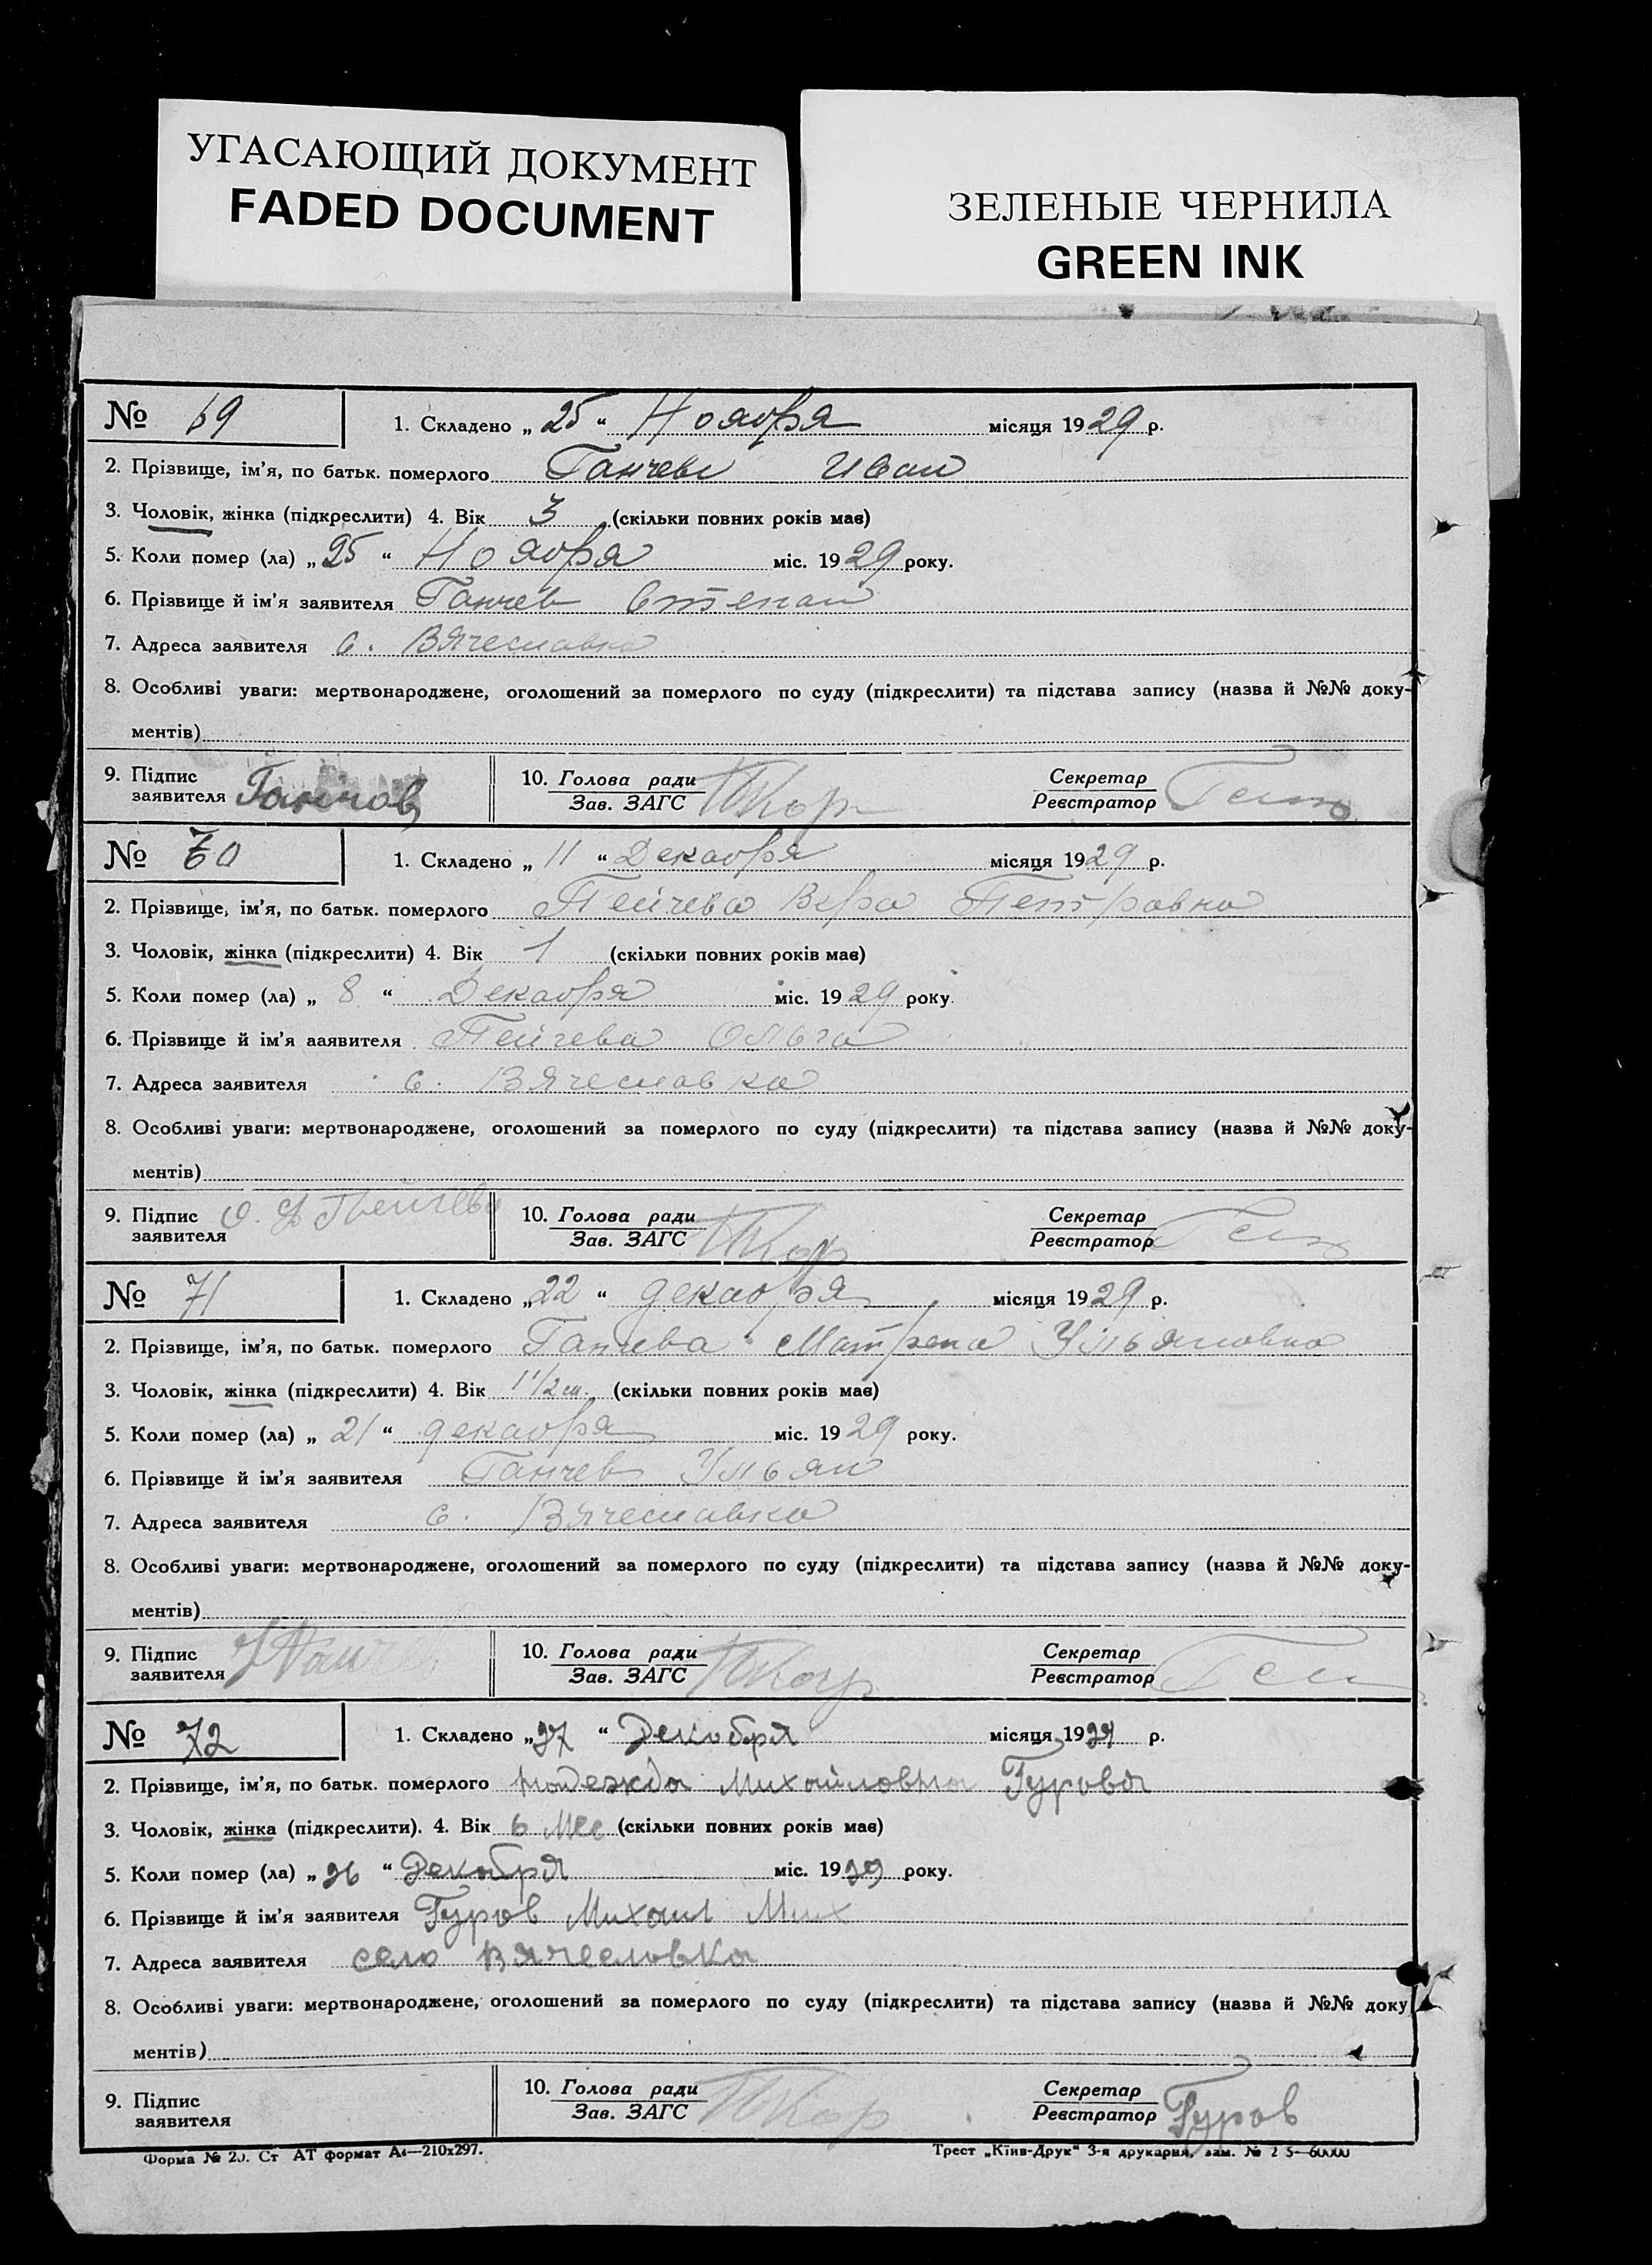 УГАСАЮЩИЙ ДОКУМЕНТ
FADED DOCUMENT
ЗЕЛЕНЫЕ ЧЕРНИЛА
GREEN INK
№ 69 1. Складено „25“ Ноября місяця 1929 р.
2. Прізвище, ім’я, по батьк. померлого Ганчев Иван
3. Чоловік, жінка (підкреслити) 4. Вік 3 (скільки повних років має)
5. Коли помер (ла) „25“ Ноября міс. 1929 року.
6. Прізвище й ім’я заявителя Ганчев Степан
7. Адреса заявителя с. Вячеславка
8. Особливі уваги: мертвонароджене, оголошений за померлого по суду (підкреслити) та підстава запису (назва й №№ доку-
ментів)
9. Підпис заявителя Ганчов 10. Голова ради Зав. ЗАГС Секретар Реєстратор
№ 70 1. Складено „11“ Декабря місяця 1929 р.
2. Прізвище, ім’я, по батьк. померлого Пейчева Вера Петровна
3. Чоловік, жінка (підкреслити) 4. Вік 1 (скільки повних років має)
5. Коли помер (ла) „8“ Декабря міс. 1929 року.
6. Прізвище й ім’я ааявителя Пейчева Ольга
7. Адреса заявителя с. Вячеславка
8. Особливі уваги: мертвонароджене, оголошений за померлого по суду (підкреслити) та підстава запису (назва й №№ доку-
ментів)
9. Підпис заявителя О. Ф Пейчева 10. Голова ради Зав. ЗАГС Секретар Реєстратор
№ 71 1. Складено „22“ декабря місяця 1929 р.
2. Прізвище, ім’я, по батьк. померлого Ганчева Матрена Ульяновна
3. Чоловік, жінка (підкреслити) 4. Вік 1 1/2 (скільки повних років має)
5. Коли помер (ла) „21“ декабря міс. 1929 року.
6. Прізвище й ім’я заявителя Ганчев Ульян
7. Адреса заявителя с. Вячеславка
8. Особливі уваги: мертвонароджене, оголошений за померлого по суду (підкреслити) та підстава запису (назва й №№ доку-
ментів)
9. Підпис заявителя 10. Голова ради Зав. ЗАГС Секретар Реєстратор
№ 72 1. Складено „27“ Декобря місяця 1929 р.
2. Прізвище, ім’я, по батьк. померлого Надежда Михайловна Гурова
3. Чоловік, жінка (підкреслити). 4. Вік 6 Мес (скільки повних років має)
5. Коли помер (ла) „26“ Декабря міс. 1929 року.
6. Прізвище й ім’я заявителя Гуров Михаил Мих
7. Адреса заявителя село Вячесловка
8. Особливі уваги: мертвонароджене, оголошений за померлого по суду (підкреслити) та підстава запису (назва й №№ доку
ментів)
9. Підпис заявителя 10. Голова ради Зав. ЗАГС Секретар Реєстратор Гуров
Форма № 20. Ст АТ формат А4—210х297. Трест „Київ-Друк“ 3-я друкарня, зам. №